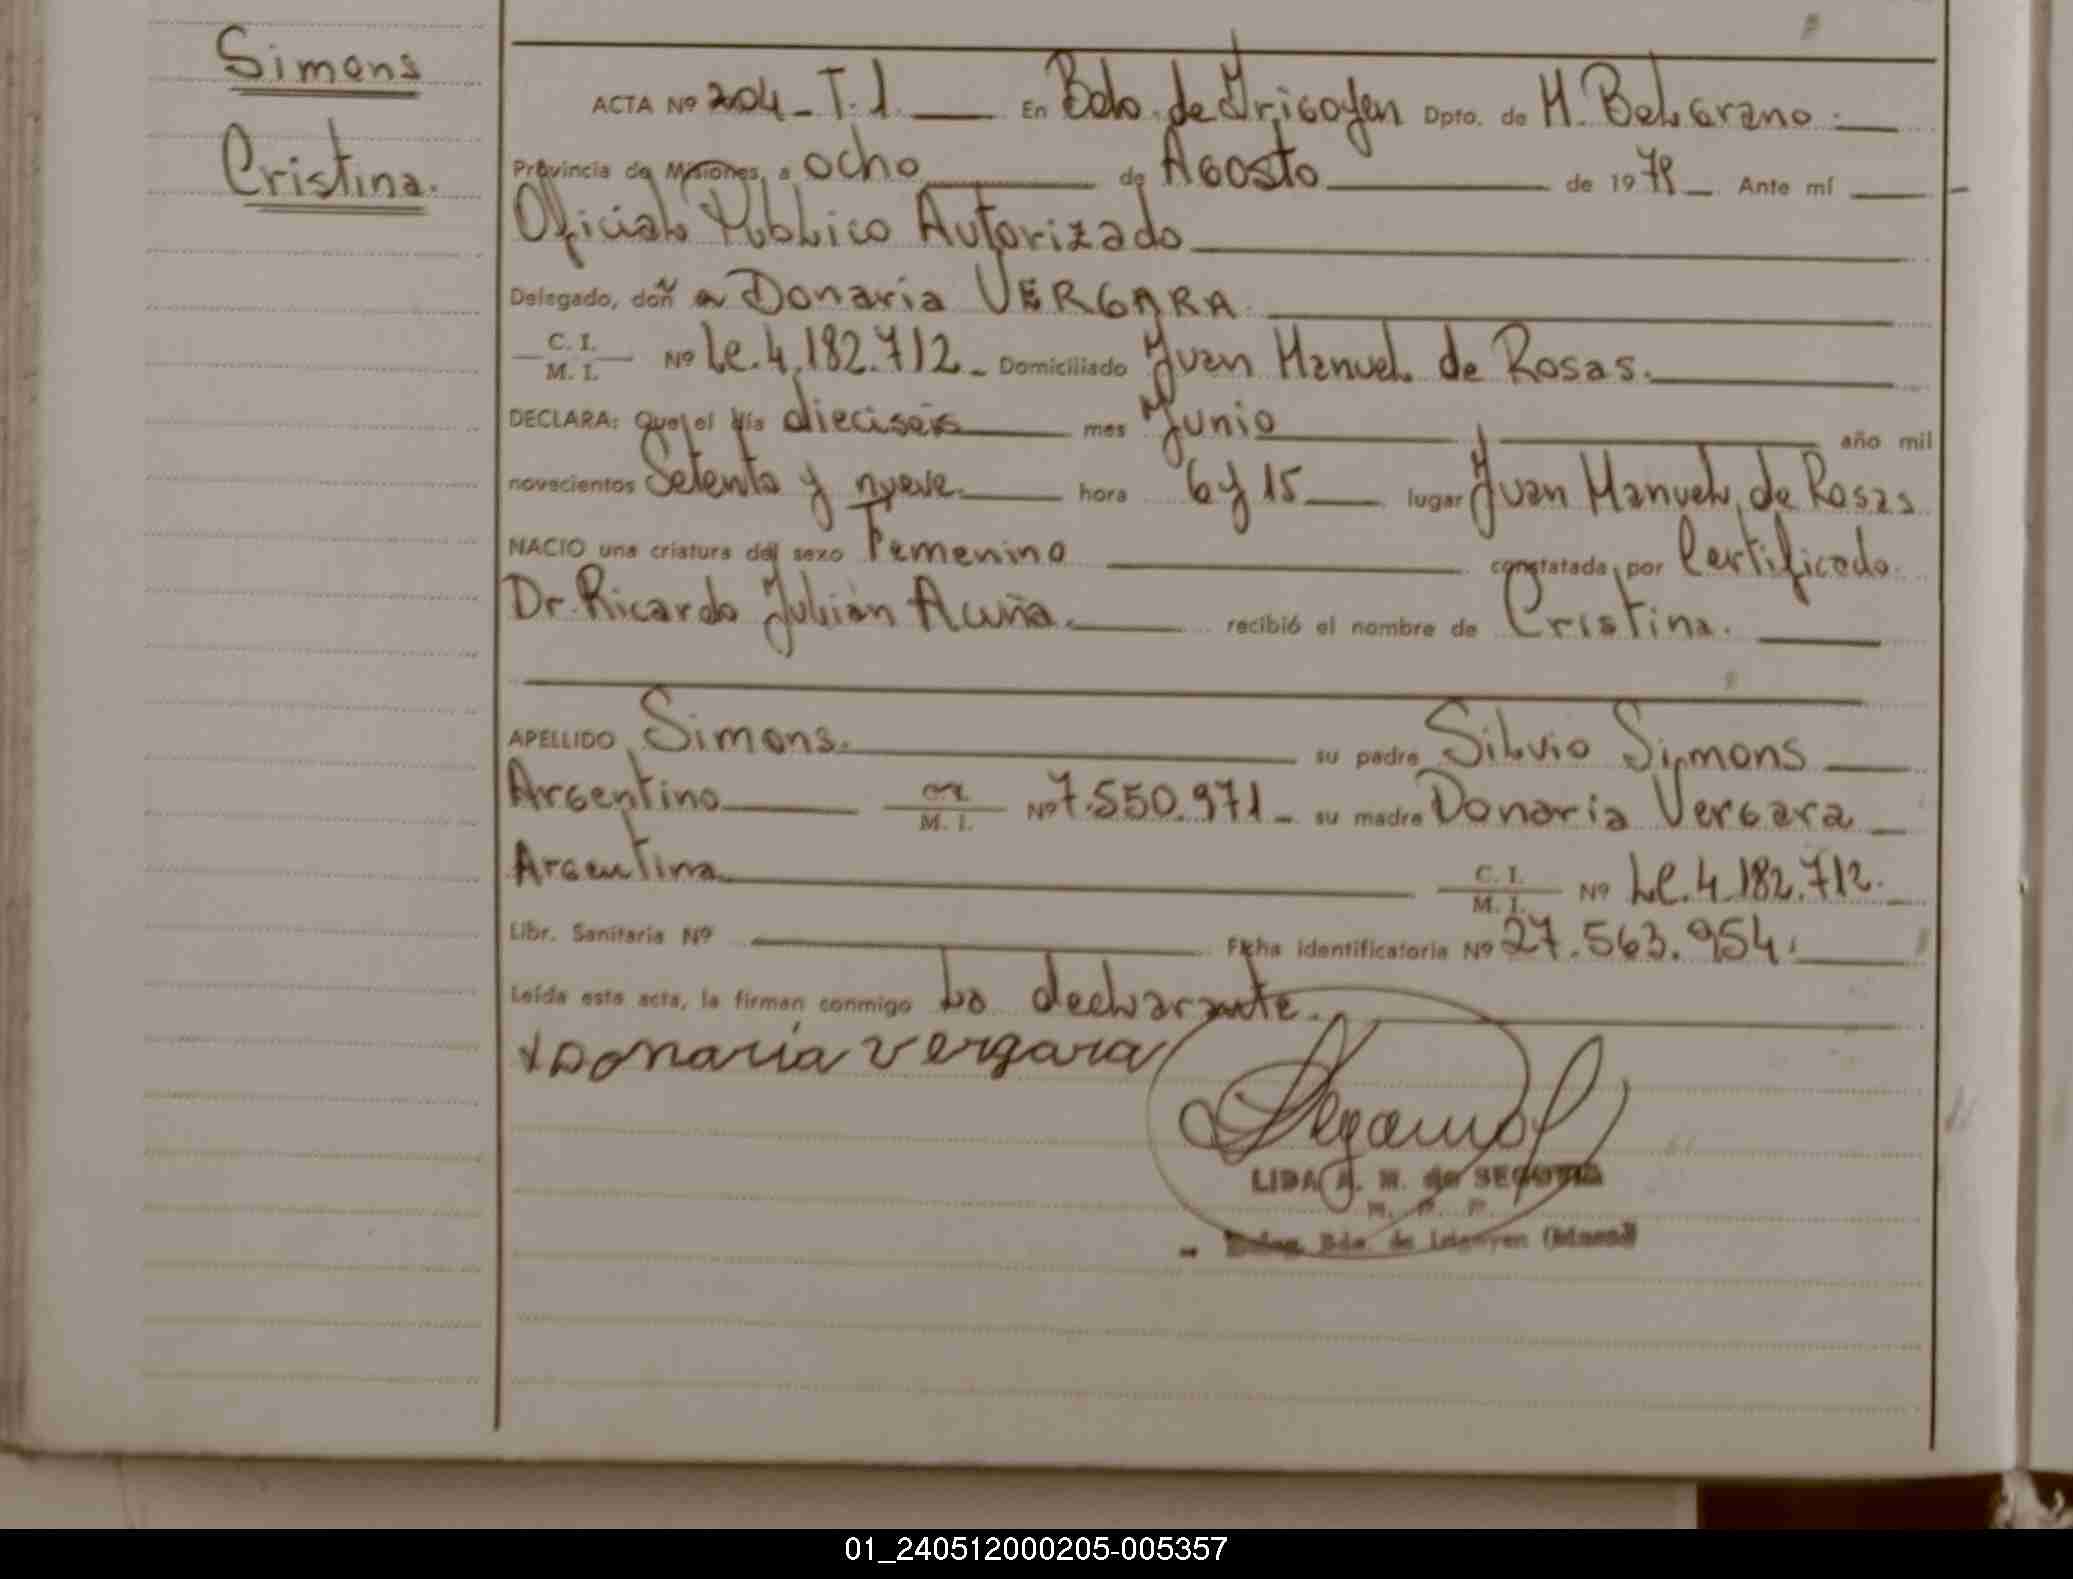 Simons
Cristina.
ACTA Nº 204_T.1. En Bdo. de Yrigoyen Dpto. de M. Belgrano.
Provincia de Misiones, a ocho de Agosto de 1979 Ante mí
Oficial Público Autorizado
Delegado, doña Donaria VERGARA.
C. I. M. I. Nº Lc. 4.182.712_ Domiciliado Juan Manuel de Rosas.
DECLARA: Que el día dieciseis mes Junio año mil
novecientos Setenta y nueve hora 6 y 15 lugar Juan Manuel de Rosas
NACIO una criatura del sexo Femenino constatada por Certificado.
Dr. Ricardo Julián Acuña. recibió el nombre de Cristina.
APELLIDO Simons. su padre Silvio Simons
Argentino M. I. Nº 7.550.971_ su madre Donaria Vergara
Argentina C. I. M. I. Nº Lc. 4.182.712.
Libr. Sanitaria Nº Ficha identificatoria Nº 27.563.954.
Leída esta acta, la firman conmigo La declarante.
Donaría vergara
LIDA A. M. de SEGOVIA
Deleg. Bdo. de Irigoyen (Mnes)
01_240512000205-005357